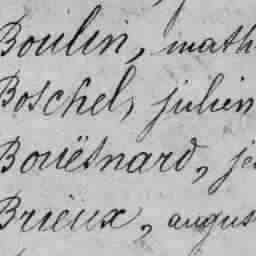 Boulin, math
Boschel, julien
Bouësnard, je
Brieux, augus